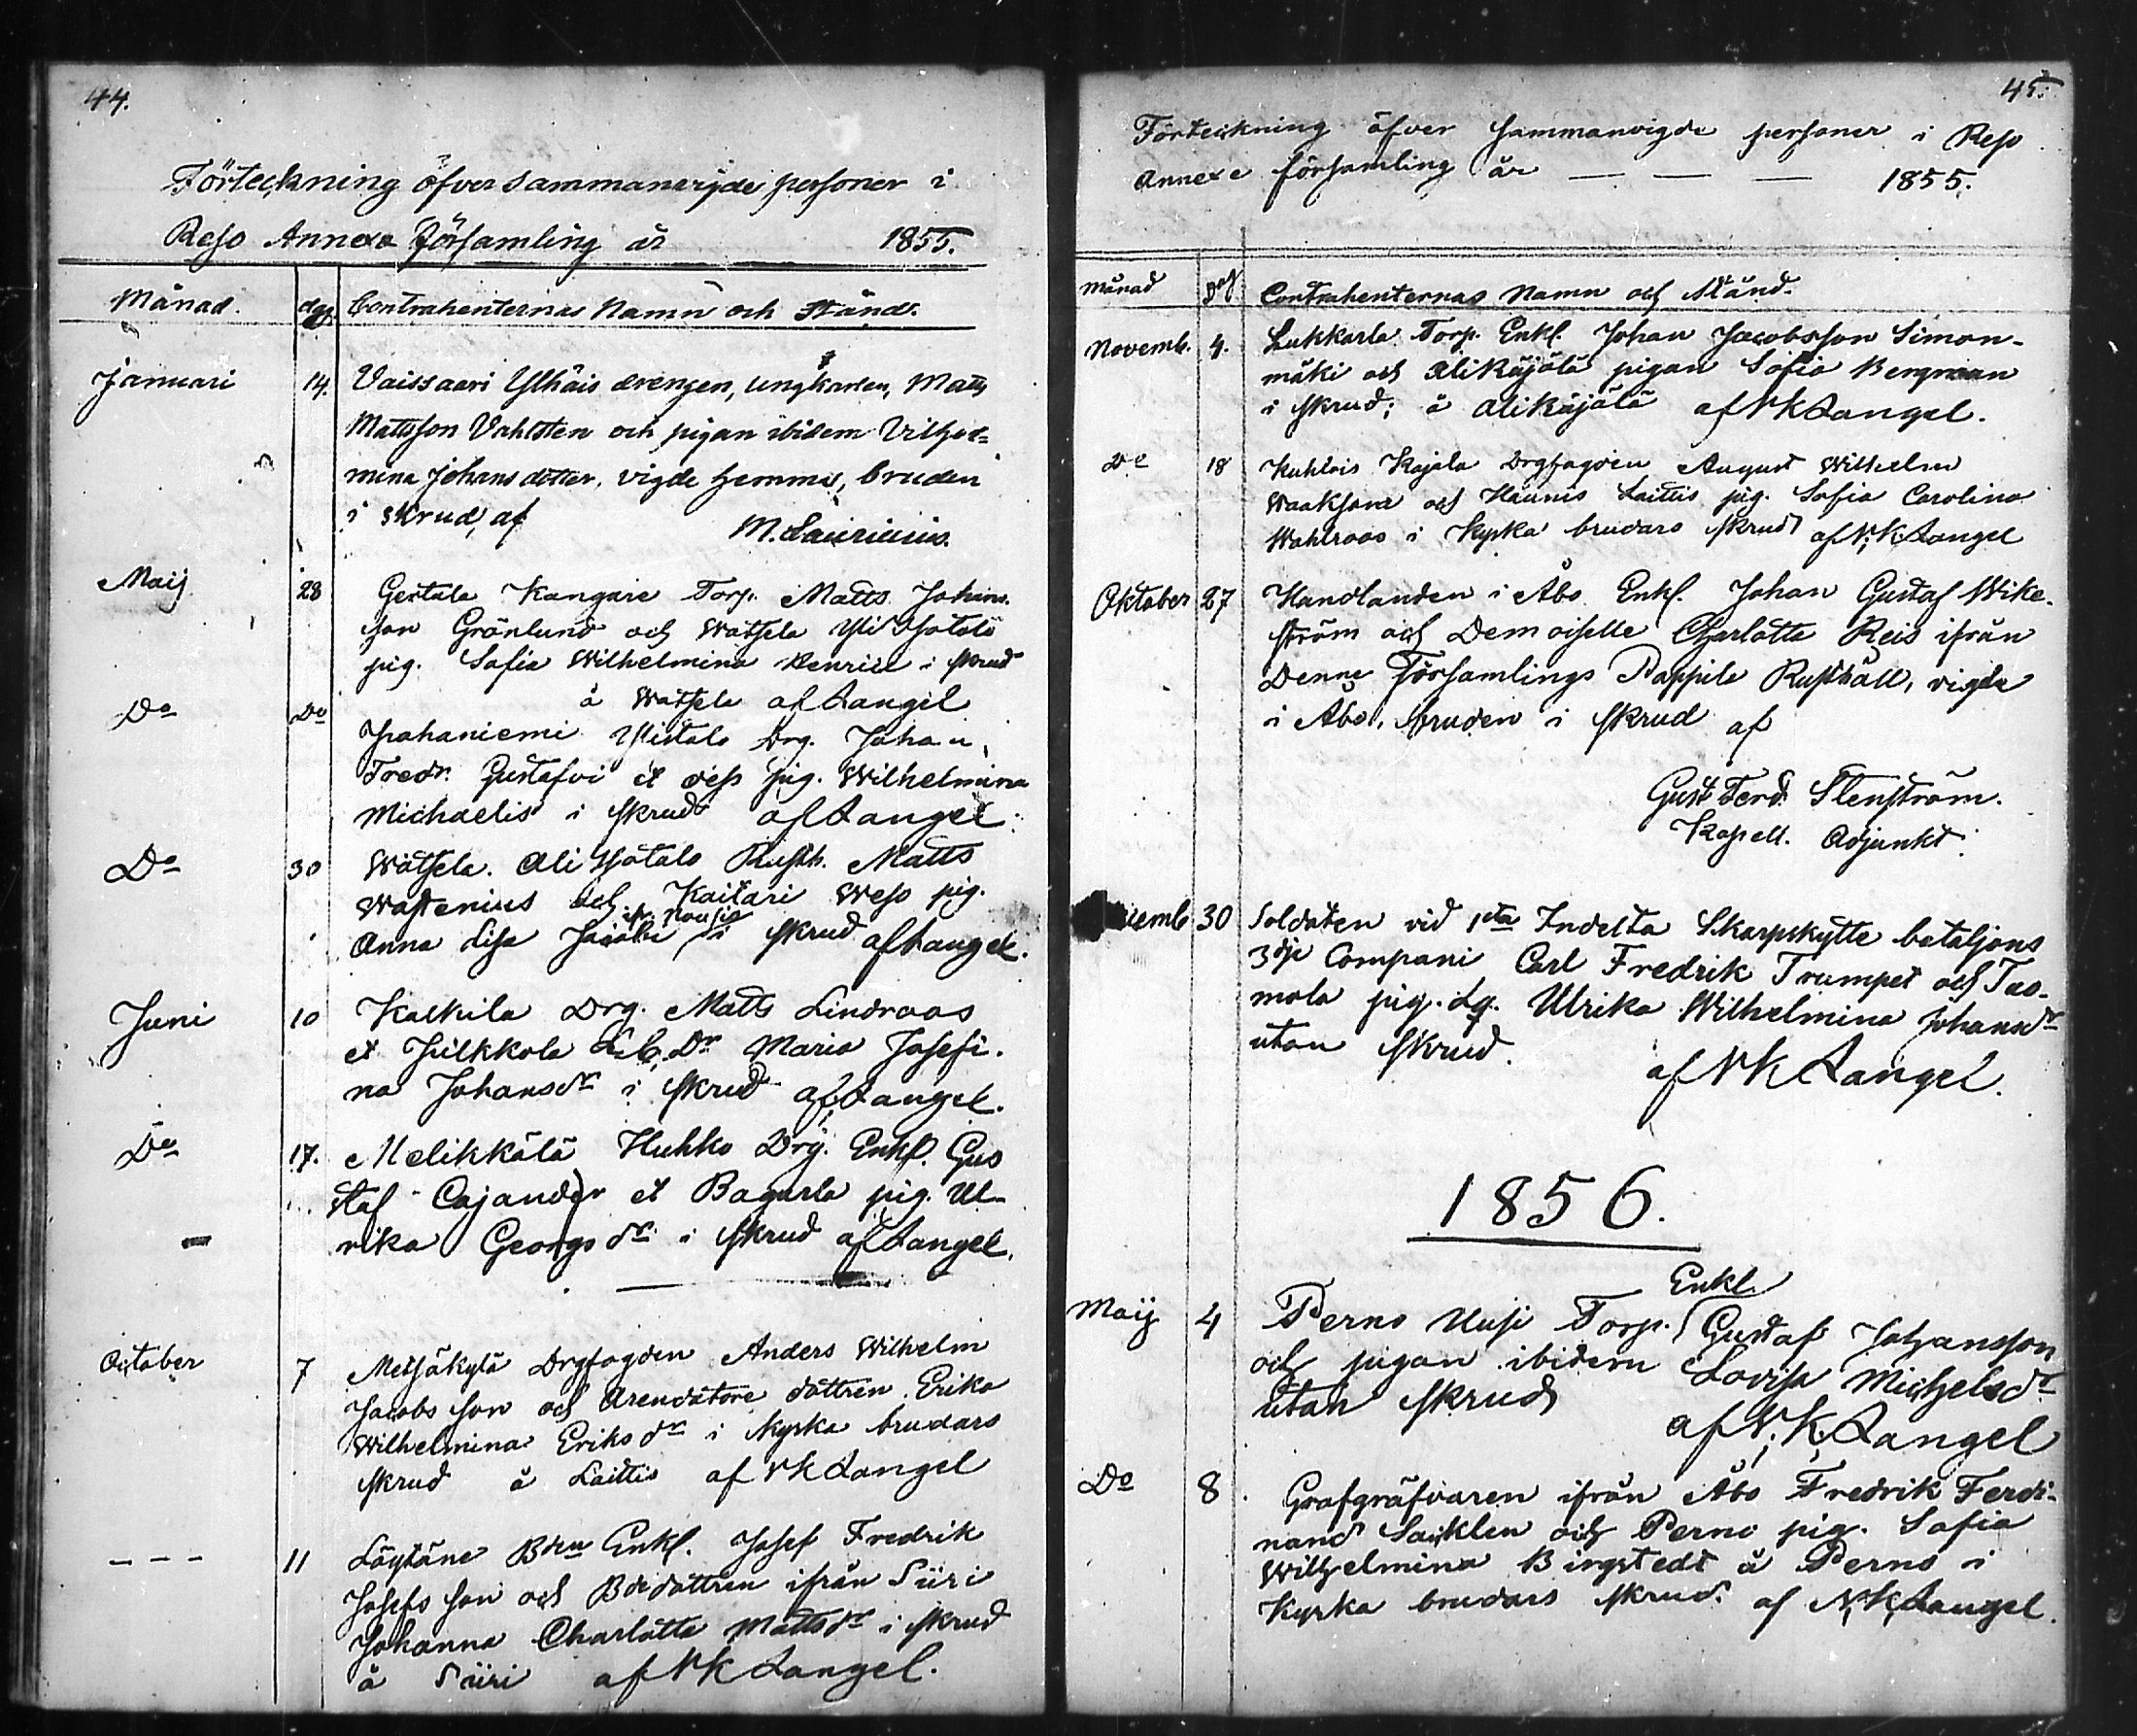 44.
Förteckning öfver sammanvigde personer i
Reso Annexe församling år 1855.
Månad. dag Contrahenternas Namn och Stånd.
Januari 14. Vaissaari Ylhäis drengen, ungkarlen, Matts
Mattsson Vahlsten och pigan ibidem Vilhel-
mina Johansdotter, vigde hemma, bruden
i skrud, af M. Laurinus.
Maij 28 Gertala Kangare Torp. Matts Johans-
son Grönlund och Wätsela Yli Isotalo
pig. Sofia Wilhelmina Henrici i skrud
å Wätsela af Langel
Do Do Ihahaniemi Ylistalo Drg. Johan
Fredr. Gustafvi et dess pig. Wilhelmina
Michaelis i skrud af Langel.
Do 30 Wätsela Ali Isotalo Rusth. Matts
Wastenius och Kaitari Weso pig.
fr. Nousis
Anna Lisa Jacobi i skrud af Langel.
Juni 10 Kalkila Drg. Matts Lindroos
et Dr Maria Josefi-
na Johansdr i skrud af Langel.
Do 17. Mälikkälä Huhko Drg. Enkl. Gus
taf Cajander et Bagarla pig. Ul-
rika Georgsdr i skrud af Langel.
October 7 Metsäkylä Drgfogden Anders Wilhelm
Jacobsson och Arendators dottren Erika
Wilhelmina Eriksdr i kyrka brudars
skrud å Laittis af NK Langel
- - - 11 Löytäne Bden Enkl. Josef Fredrik
Josefsson och Bdedottren ifrån Siiri
Johanna Charlotta Mattsdr i skrud
å Siiri af NK Langel.
45.
Förteckning öfver sammanvigde personer i Reso
Annexe församling år — — — 1855.
Månad Dag Contrahenternas Namn och Stånd.
Novemb. 4. Lukkarla Torp. Enkl. Johan Jacobsson Simon-
mäki och Alikäjälä pigan Sofia Bergman
i skrud; å Alikäjälä af NK Langel.
Do 18 Kuhlois Kajala Drgfogden August Wilhelm
och Haunis Laittis pig. Sofia Carolina
Wahlroos i Kyrka brudars skrud af N.K. Langel
Oktober 27 Handlanden i Åbo Enkl. Johan Gustaf Wike-
ström och Demoiselle Charlotta Reis ifrån
Denne Församlings Pappila Rusthåll, vigde
i Åbo, bruden i skrud af
Gust. Ferd. Stenström.
Kapell. Adjunkt.
30 Soldaten vid 1sta Indelta Skarpskytte bataljons
3dje Compani Carl Fredrik Trumpet och Tas-
mola pig. Ulrika Wilhelmina Johansdr
utan skrud.
af NK Langel.
1856.
Enkl.
Maij 4 Perno Uusi Torp. Gustaf Johansson
och pigan ibidem Lovisa Michelsdr
utan skrud
af N. K. Langel
Do 8. Grafgräfvaren ifrån Åbo Fredrik Ferdi-
nand Sacklen och Perno pig. Sofia
Wilhelmina Bingstedt å Perno i
Kyrka brudars skrud. af N.K. Langel.